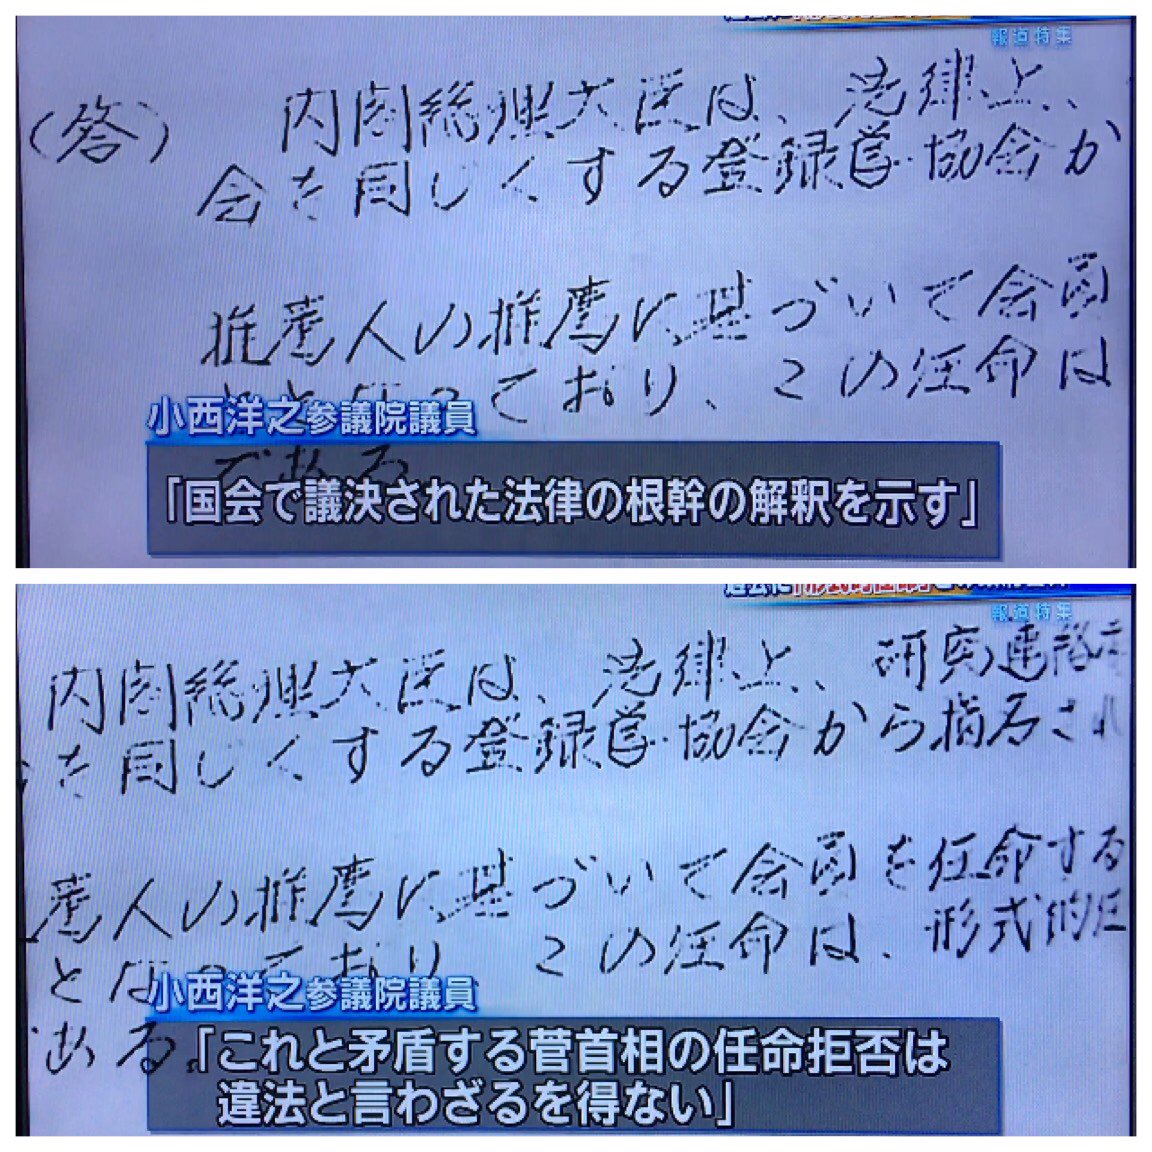 報道特集
(答) 内閣総理大臣は、法律上、
会を同じくする登録学・協会か
推薦人の推薦に基づいて会員
ととなっており、この任命は
である。
小西洋之参議院議員
「国会で議決された法律の根幹の解釈を示す」
過去に「形式的任命」
報道特集
内閣総理大臣は、法律上、研究連絡
会を同じくする登録学・協会から指名され
薦人の推薦に基づいて会員を任命する
となっており、この任命は、形式的任
ある。
小西洋之参議院議員
「これと矛盾する菅首相の任命拒否は
違法と言わざるを得ない」